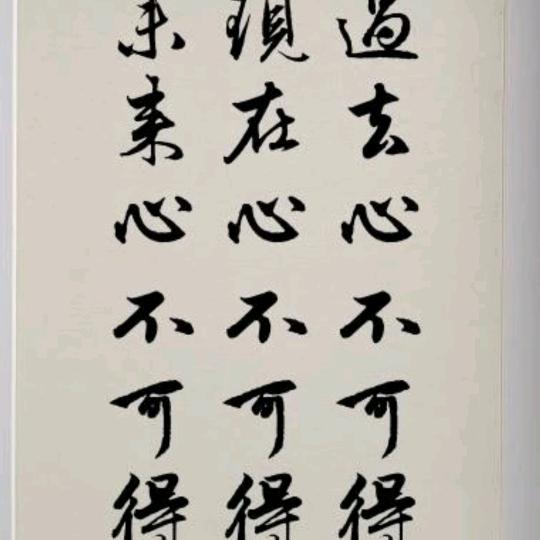 過去心不可得
現在心不可得
未来心不可得